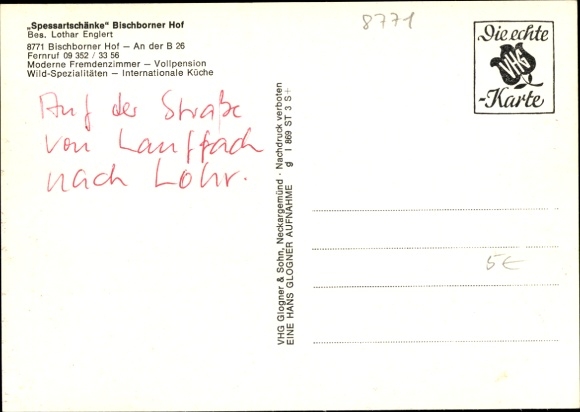 „Spessartschänke“ Bischborner Hof
Bes. Lothar Englert
8771 Bischborner Hof — An der B 26
Fernruf 09 352 / 33 56
Moderne Fremdenzimmer — Vollpension
Wild-Spezialitäten — Internationale Küche
8771
Die echte
VHG
-Karte
Auf der Straße
von Lauffach
nach Lohr.
VHG Glogner & Sohn, Neckargemünd · Nachdruck verboten
EINE HANS GLOGNER AUFNAHME g I 869 ST 3 S+
5€